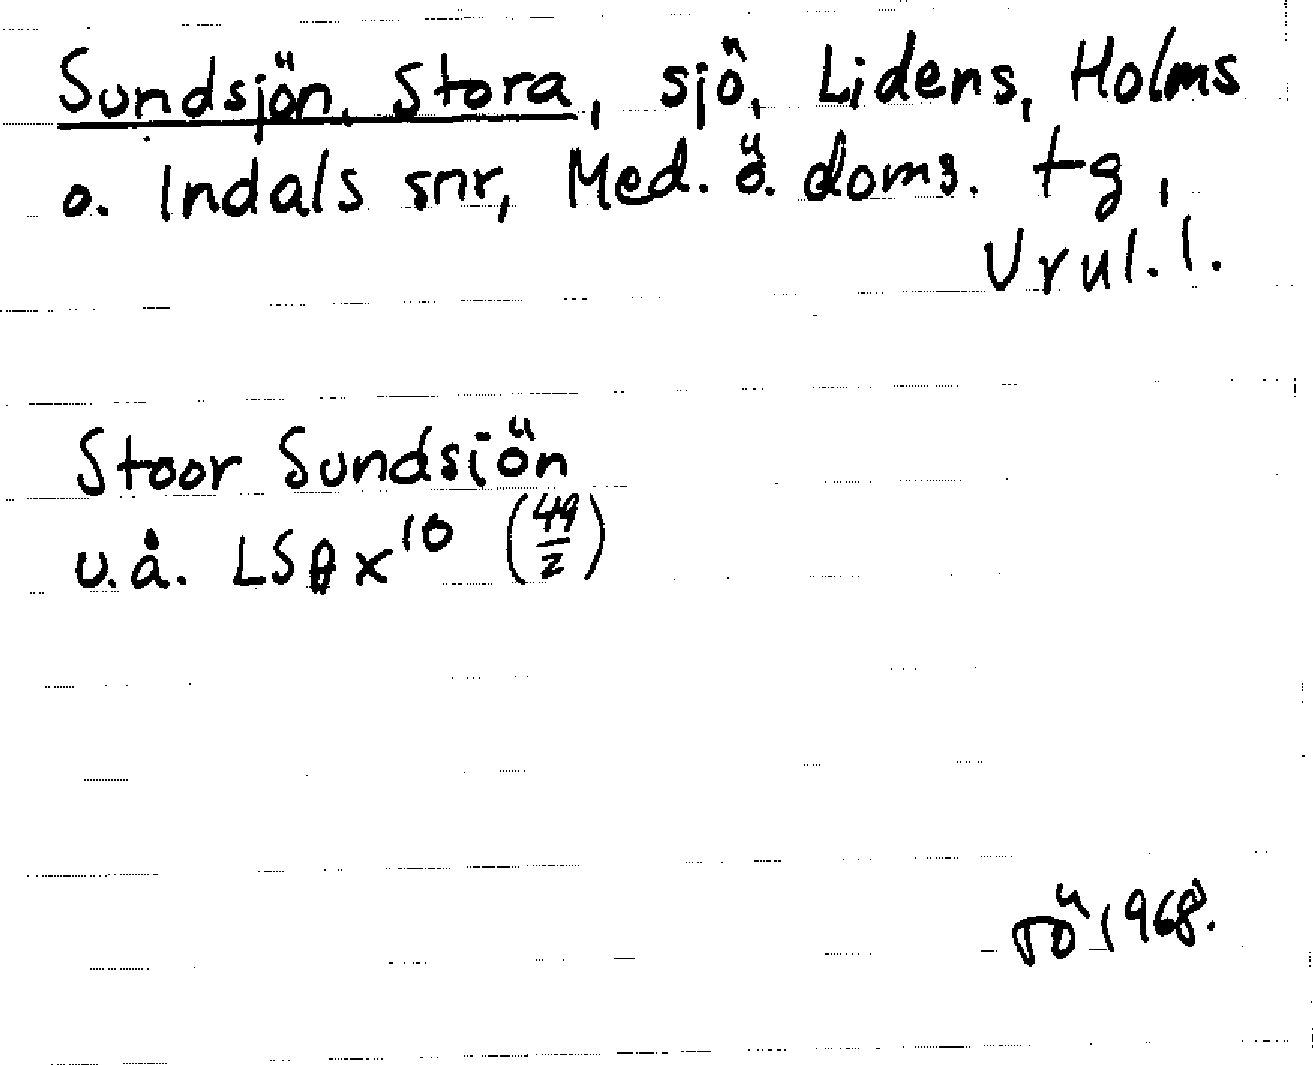 Sundsjön, Stora, sjö, Lidens, Holms
o. Indals snr, Med. ö. doms. tg,
Vrul. l.
Stoor Sundsiön
u.å. LSA x¹⁰ (49/2)
1968.